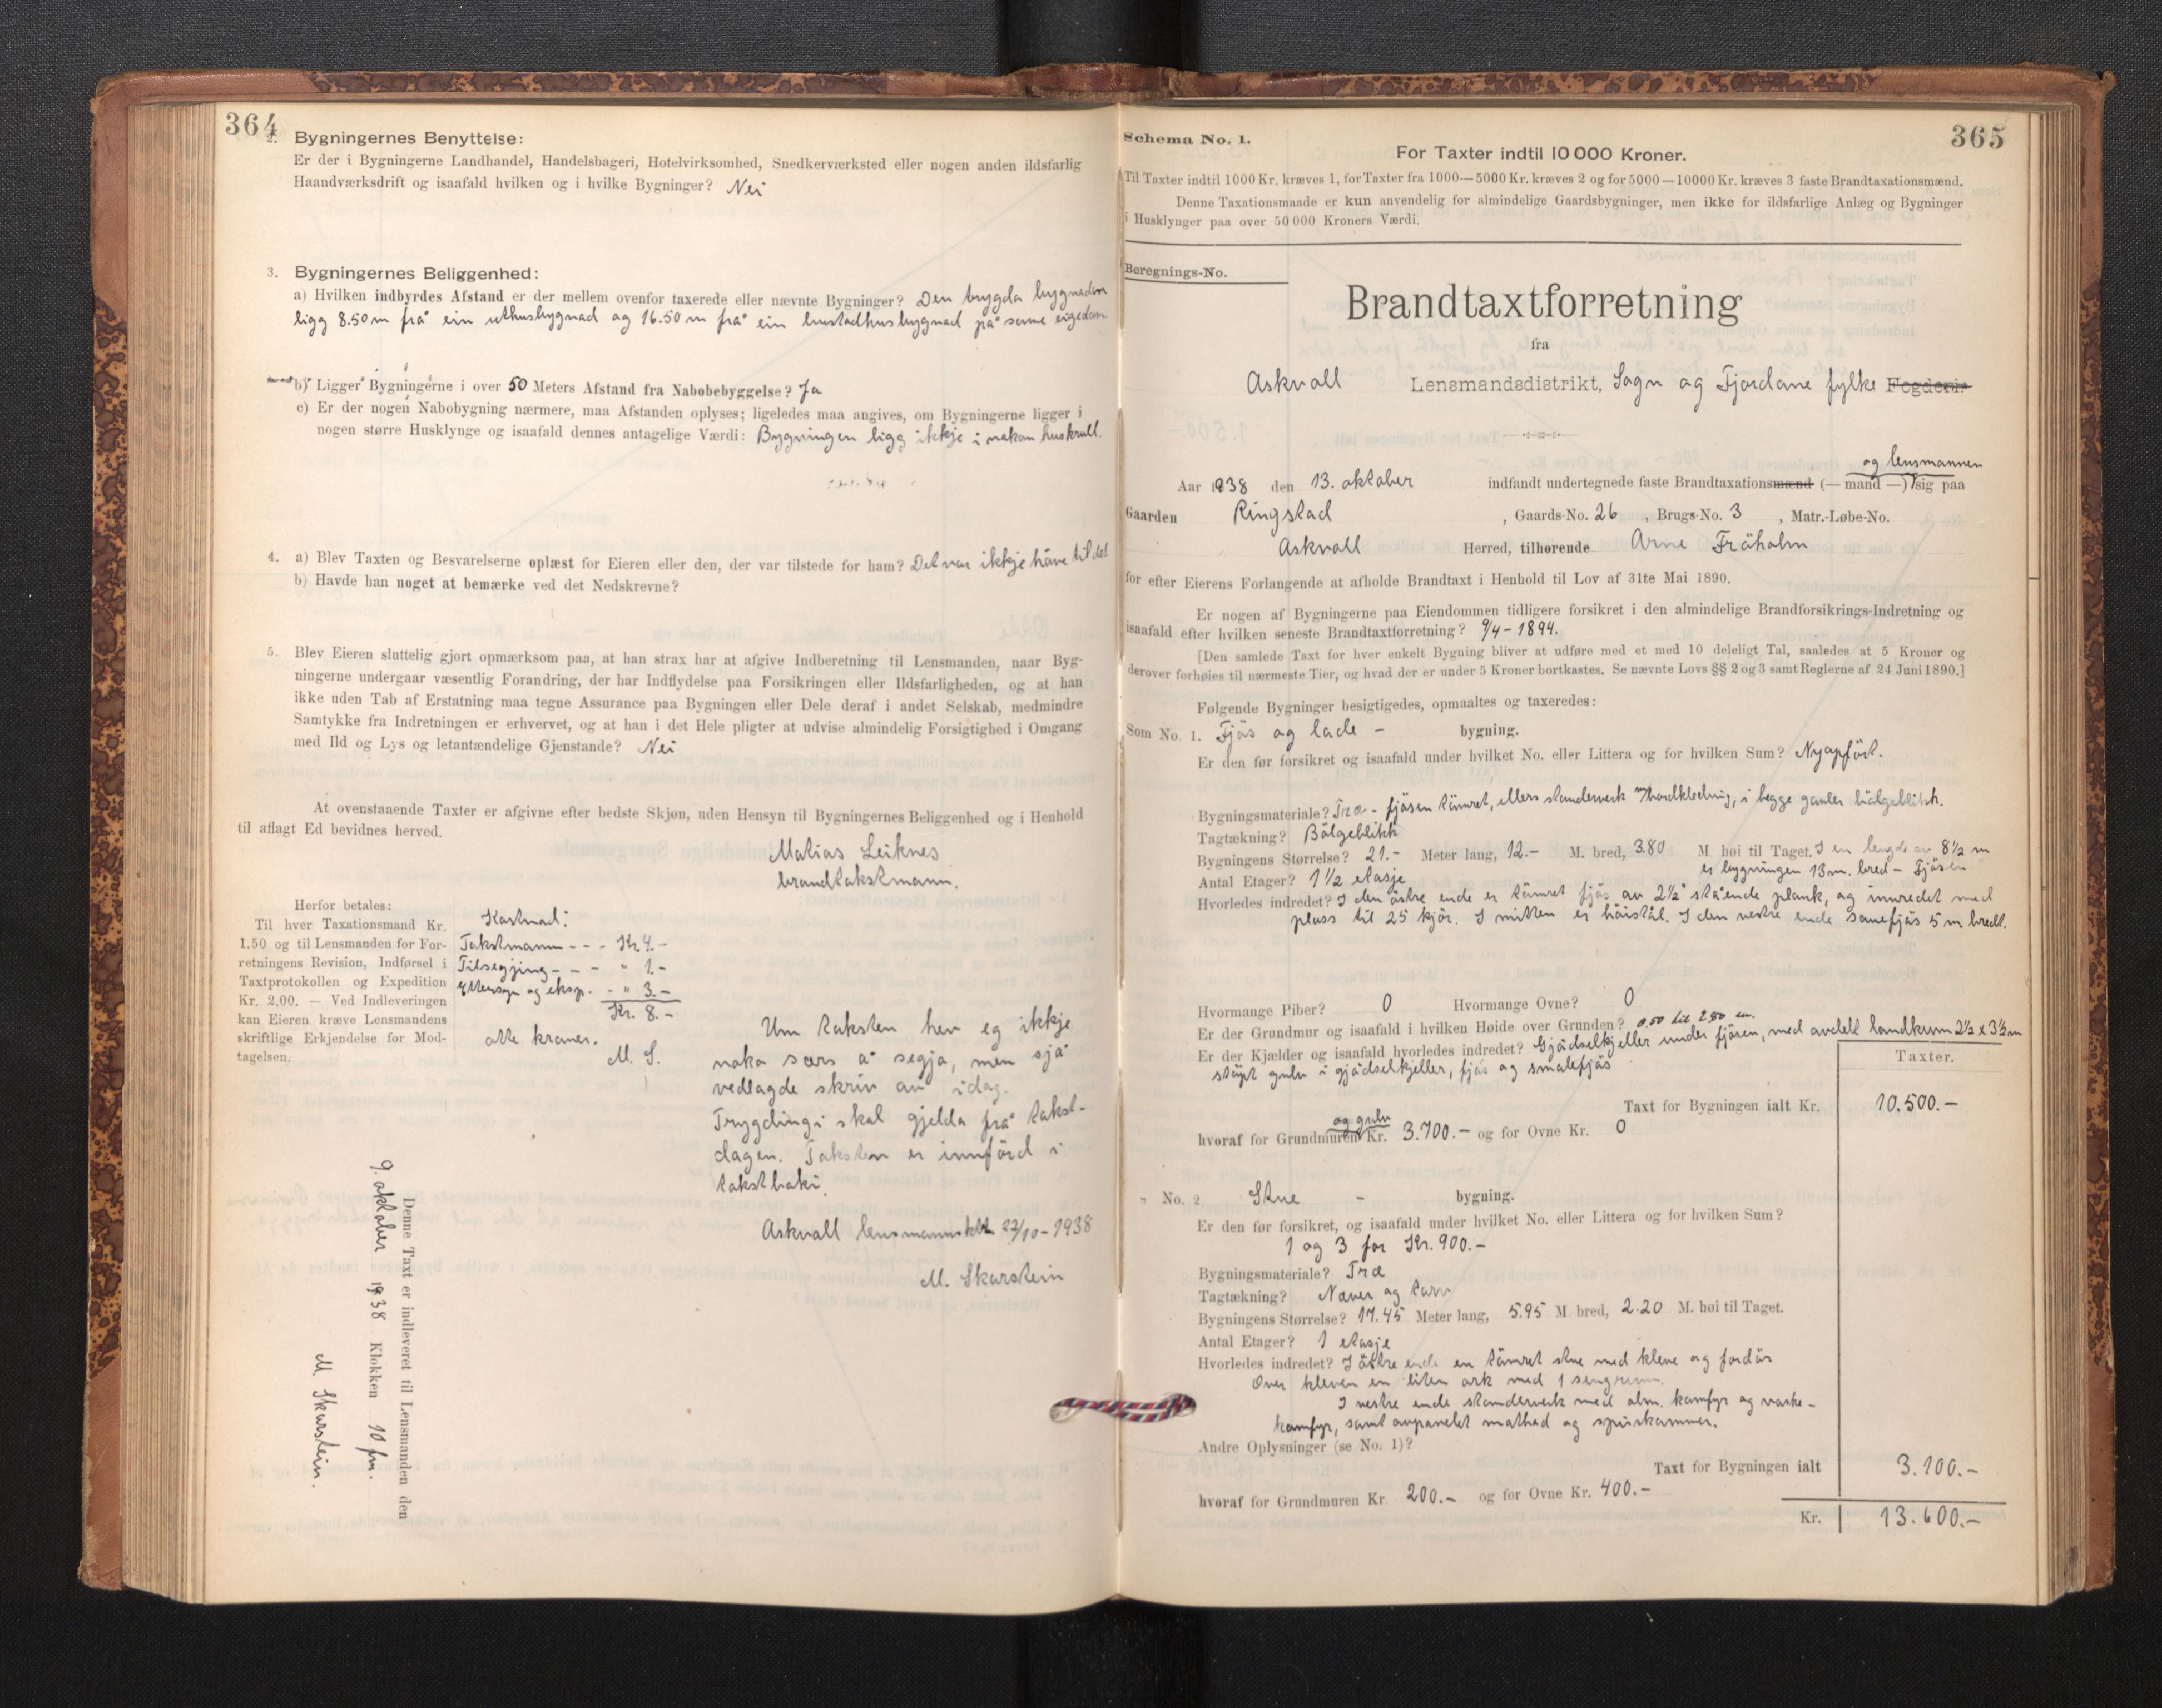 364
2. Bygningernes Benyttelse:
Er der i Bygningerne Landhandel, Handelsbageri, Hotelvirksomhed, Snedkerværksted eller nogen anden ildsfarlig
Haandværksdrift og isaafald hvilken og i hvilke Bygninger? Nei
3. Bygningernes Beliggenhed:
a) Hvilken indbyrdes Afstand er der mellem ovenfor taxerede eller nævnte Bygninger? Den trygda bygnaden
ligg 8.50 m frå ein uthusbygnad og 16.50 m frå ein bustadhusbygnad på same eigedom
b) Ligger Bygningerne i over 50 Meters Afstand fra Nabobebyggelse? Ja
c) Er der nogen Nabobygning nærmere, maa Afstanden oplyses; ligeledes maa angives, om Bygningerne ligger i
nogen større Husklynge og isaafald dennes antagelige Værdi: Bygningen ligg ikkje i nokon huskrull.
4. a) Blev Taxten og Besvarelserne oplæst for Eieren eller den, der var tilstede for ham? Det var ikkje høve til det
b) Havde han noget at bemærke ved det Nedskrevne?
5. Blev Eieren sluttelig gjort opmærksom paa, at han strax har at afgive Indberetning til Lensmanden, naar Byg-
ningerne undergaar væsentlig Forandring, der har Indflydelse paa Forsikringen eller Ildsfarligheden, og at han
ikke uden Tab af Erstatning maa tegne Assurance paa Bygningen eller Dele deraf i andet Selskab, medmindre
Samtykke fra Indretningen er erhvervet, og at han i det Hele pligter at udvise almindelig Forsigtighed i Omgang
med Ild og Lys og letantændelige Gjenstande? Nei
At ovenstaaende Taxter er afgivne efter bedste Skjøn, uden Hensyn til Bygningernes Beliggenhed og i Henhold
til aflagt Ed bevidnes herved.
Matias Leiknes
brandtakstmann.
Herfor betales:
Til hver Taxationsmand Kr.
1.50 og til Lensmanden for For-
retningens Revision, Indførsel i
Taxtprotokollen og Expedition
Kr. 2,00. — Ved Indleveringen
kan Eieren kræve Lensmandens
skriftlige Erkjendelse for Mod-
tagelsen.
Kostnad:
Takstmann - - - Kr. 4.-
Tilsegjing - - - " 1.-
Ettersyn og eksp. - " 3.-
Kr. 8.-
otte kroner.
M. S.
Um taksten hev eg ikkje
noko særs å segja, men sjå
vedlagde skriv av idag.
Trygdingi skal gjelda frå takst-
dagen. Taksten er innförd i
takstboki.
Askvoll lensmannsktr. 22/10-1938
M. Skarstein
Denne Taxt er indleveret til Lensmanden den
9. oktober 1938 Klokken 10 fm.
M. Skarstein.
365
Schema No. 1.
For Taxter indtil 10 000 Kroner.
Til Taxter indtil 1000 Kr. kræves 1, for Taxter fra 1000—5000 Kr. kræves 2 og for 5000—10000 Kr. kræves 3 faste Brandtaxationsmænd.
Denne Taxationsmaade er kun anvendelig for almindelige Gaardsbygninger, men ikke for ildsfarlige Anlæg og Bygninger
i Husklynger paa over 50 000 Kroners Værdi.
Beregnings-No.
Brandtaxtforretning
fra
Askvoll Lensmandsdistrikt, Sogn og Fjordane fylke Fogderi.
og lensmannen
Aar 1938 den 13. oktober indfandt undertegnede faste Brandtaxationsmænd (— mand —) sig paa
Gaarden Ringstad , Gaards-No. 26 , Brugs-No. 3 , Matr.-Løbe-No.
Askvoll Herred, tilhørende Arne Fräholm
for efter Eierens Forlangende at afholde Brandtaxt i Henhold til Lov af 31te Mai 1890.
Er nogen af Bygningerne paa Eiendommen tidligere forsikret i den almindelige Brandforsikrings-Indretning og
isaafald efter hvilken seneste Brandtaxtforretning? 9/4-1894.
[Den samlede Taxt for hver enkelt Bygning bliver at udføre med et med 10 deleligt Tal, saaledes at 5 Kroner og
derover forhøies til nærmeste Tier, og hvad der er under 5 Kroner bortkastes. Se nævnte Lovs §§ 2 og 3 samt Reglerne af 24 Juni 1890.]
Følgende Bygninger besigtigedes, opmaaltes og taxeredes:
Som No. 1. Fjös og lade - bygning.
Er den før forsikret og isaafald under hvilket No. eller Littera og for hvilken Sum? Nyoppfört.
Bygningsmateriale? Træ - fjösen tömret, ellers standerverk m/bordkledning, i begge gavler bölgeblikk.
Tagtækning? Bölgeblikk
Bygningens Størrelse? 21.- Meter lang, 12.- M. bred, 3.80 M. høi til Taget. I en lengde av 8½ m
er bygningen 13 m. bred - Fjösen
Antal Etager? 1½ etasje
Hvorledes indredet? I den östre ende er tömret fjös av 2½" stående plank, og innredet med
plass til 25 kjör. I mitten er höistål. I den vestre ende sauefjös 5 m bredt.
Hvormange Piber? 0 Hvormange Ovne? 0
Er der Grundmur og isaafald i hvilken Høide over Grunden? 0.50 til 2.50 m.
Er der Kjælder og isaafald hvorledes indredet? Gjödselkjeller under fjösen, med avdelt landkum 2½ x 3½ m
stöpt gulv i gjödselkjeller, fjös og smalefjös
Taxter.
Taxt for Bygningen ialt Kr. 10.500.-
og gulv
hvoraf for Grundmuren Kr. 3.700.- og for Ovne Kr. 0
" No. 2 Stue - bygning.
Er den før forsikret, og isaafald under hvilket No. eller Littera og for hvilken Sum?
1 og 3 for Kr. 900.-
Bygningsmateriale? Træ
Tagtækning? Næver og torv
Bygningens Størrelse? 17.45 Meter lang, 5.95 M. bred, 2.20 M. høi til Taget.
Antal Etager? 1 etasje
Hvorledes indredet? I östre ende en tömret stue med kleve og fordör
Over kleven en liten ark med 1 sengrum.
I vestre ende standerverk med alm. komfyr og vaske-
komfyr, samt avpanelet mathed og spiskammer.
Andre Oplysninger (se No. 1)?
Taxt for Bygningen ialt 3.100.-
hvoraf for Grundmuren Kr. 200.- og for Ovne Kr. 400.-
Kr. 13.600.-